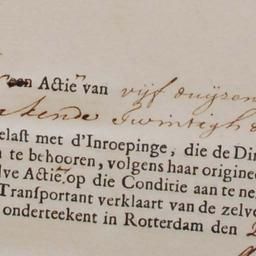 een Actiē van vijf duijzen
kende Twintigh d
elast met d'Inroepinge, die de Dir
n te behooren, volgens haar originee
lve Actiē, op die Conditie aan te ne
Transportant verklaart van de zelve
onderteekent in Rotterdam den 2